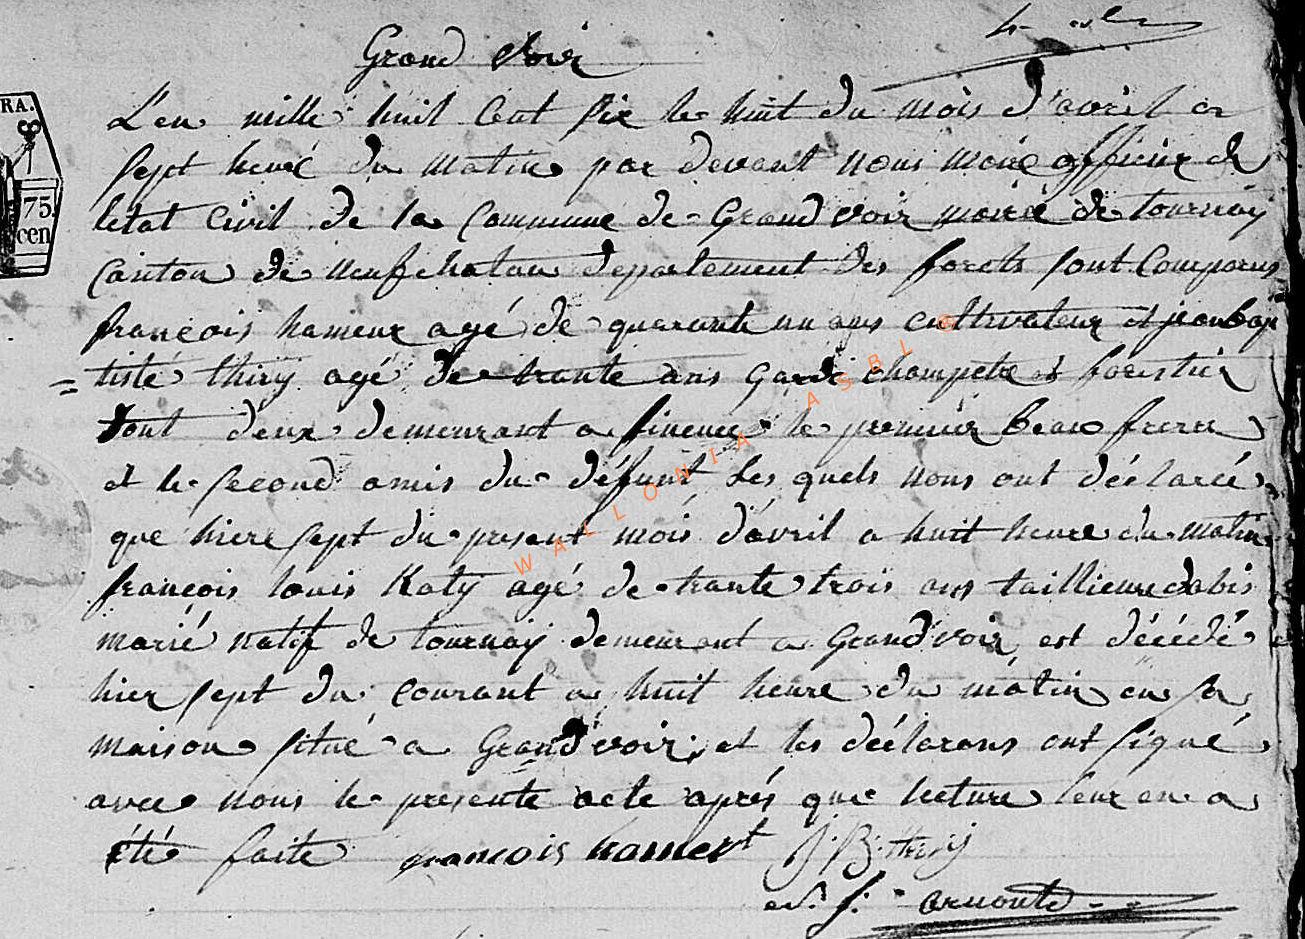 Grand Voir
RA.
75.
cen
L'en mille huit Cent Six le huit du mois d'avril a
sept heure du matin par devant nous maire officier de
letat Civil de la Commune de Grandvoir mairie de tournay
Canton de neufchatau departement des forets sont Comparus
françois hameur agé de quarante un ans cultivateur et jean bap
= tiste thiry agé de trante ans garde champetre et forestier
tout deux demeurant a le premier beau frere
et le second amis du défunt Les quels nous ont déclaré
que hiere sept du present mois d'avril a huit heure du matin
françois louis Katy agé de trante trois ans taillieure dabis
marié natif de tournay demeurant a Grandvoir est décédé
hier sept du courant a huit heure du matin en sa
maison situé a Grandvoir, et les déclarans ont signé
avec nous le presente acte aprés que lecture leur en a
été faite françois hamert J. B. thiry
arnould
WALLONIA ASBL ©